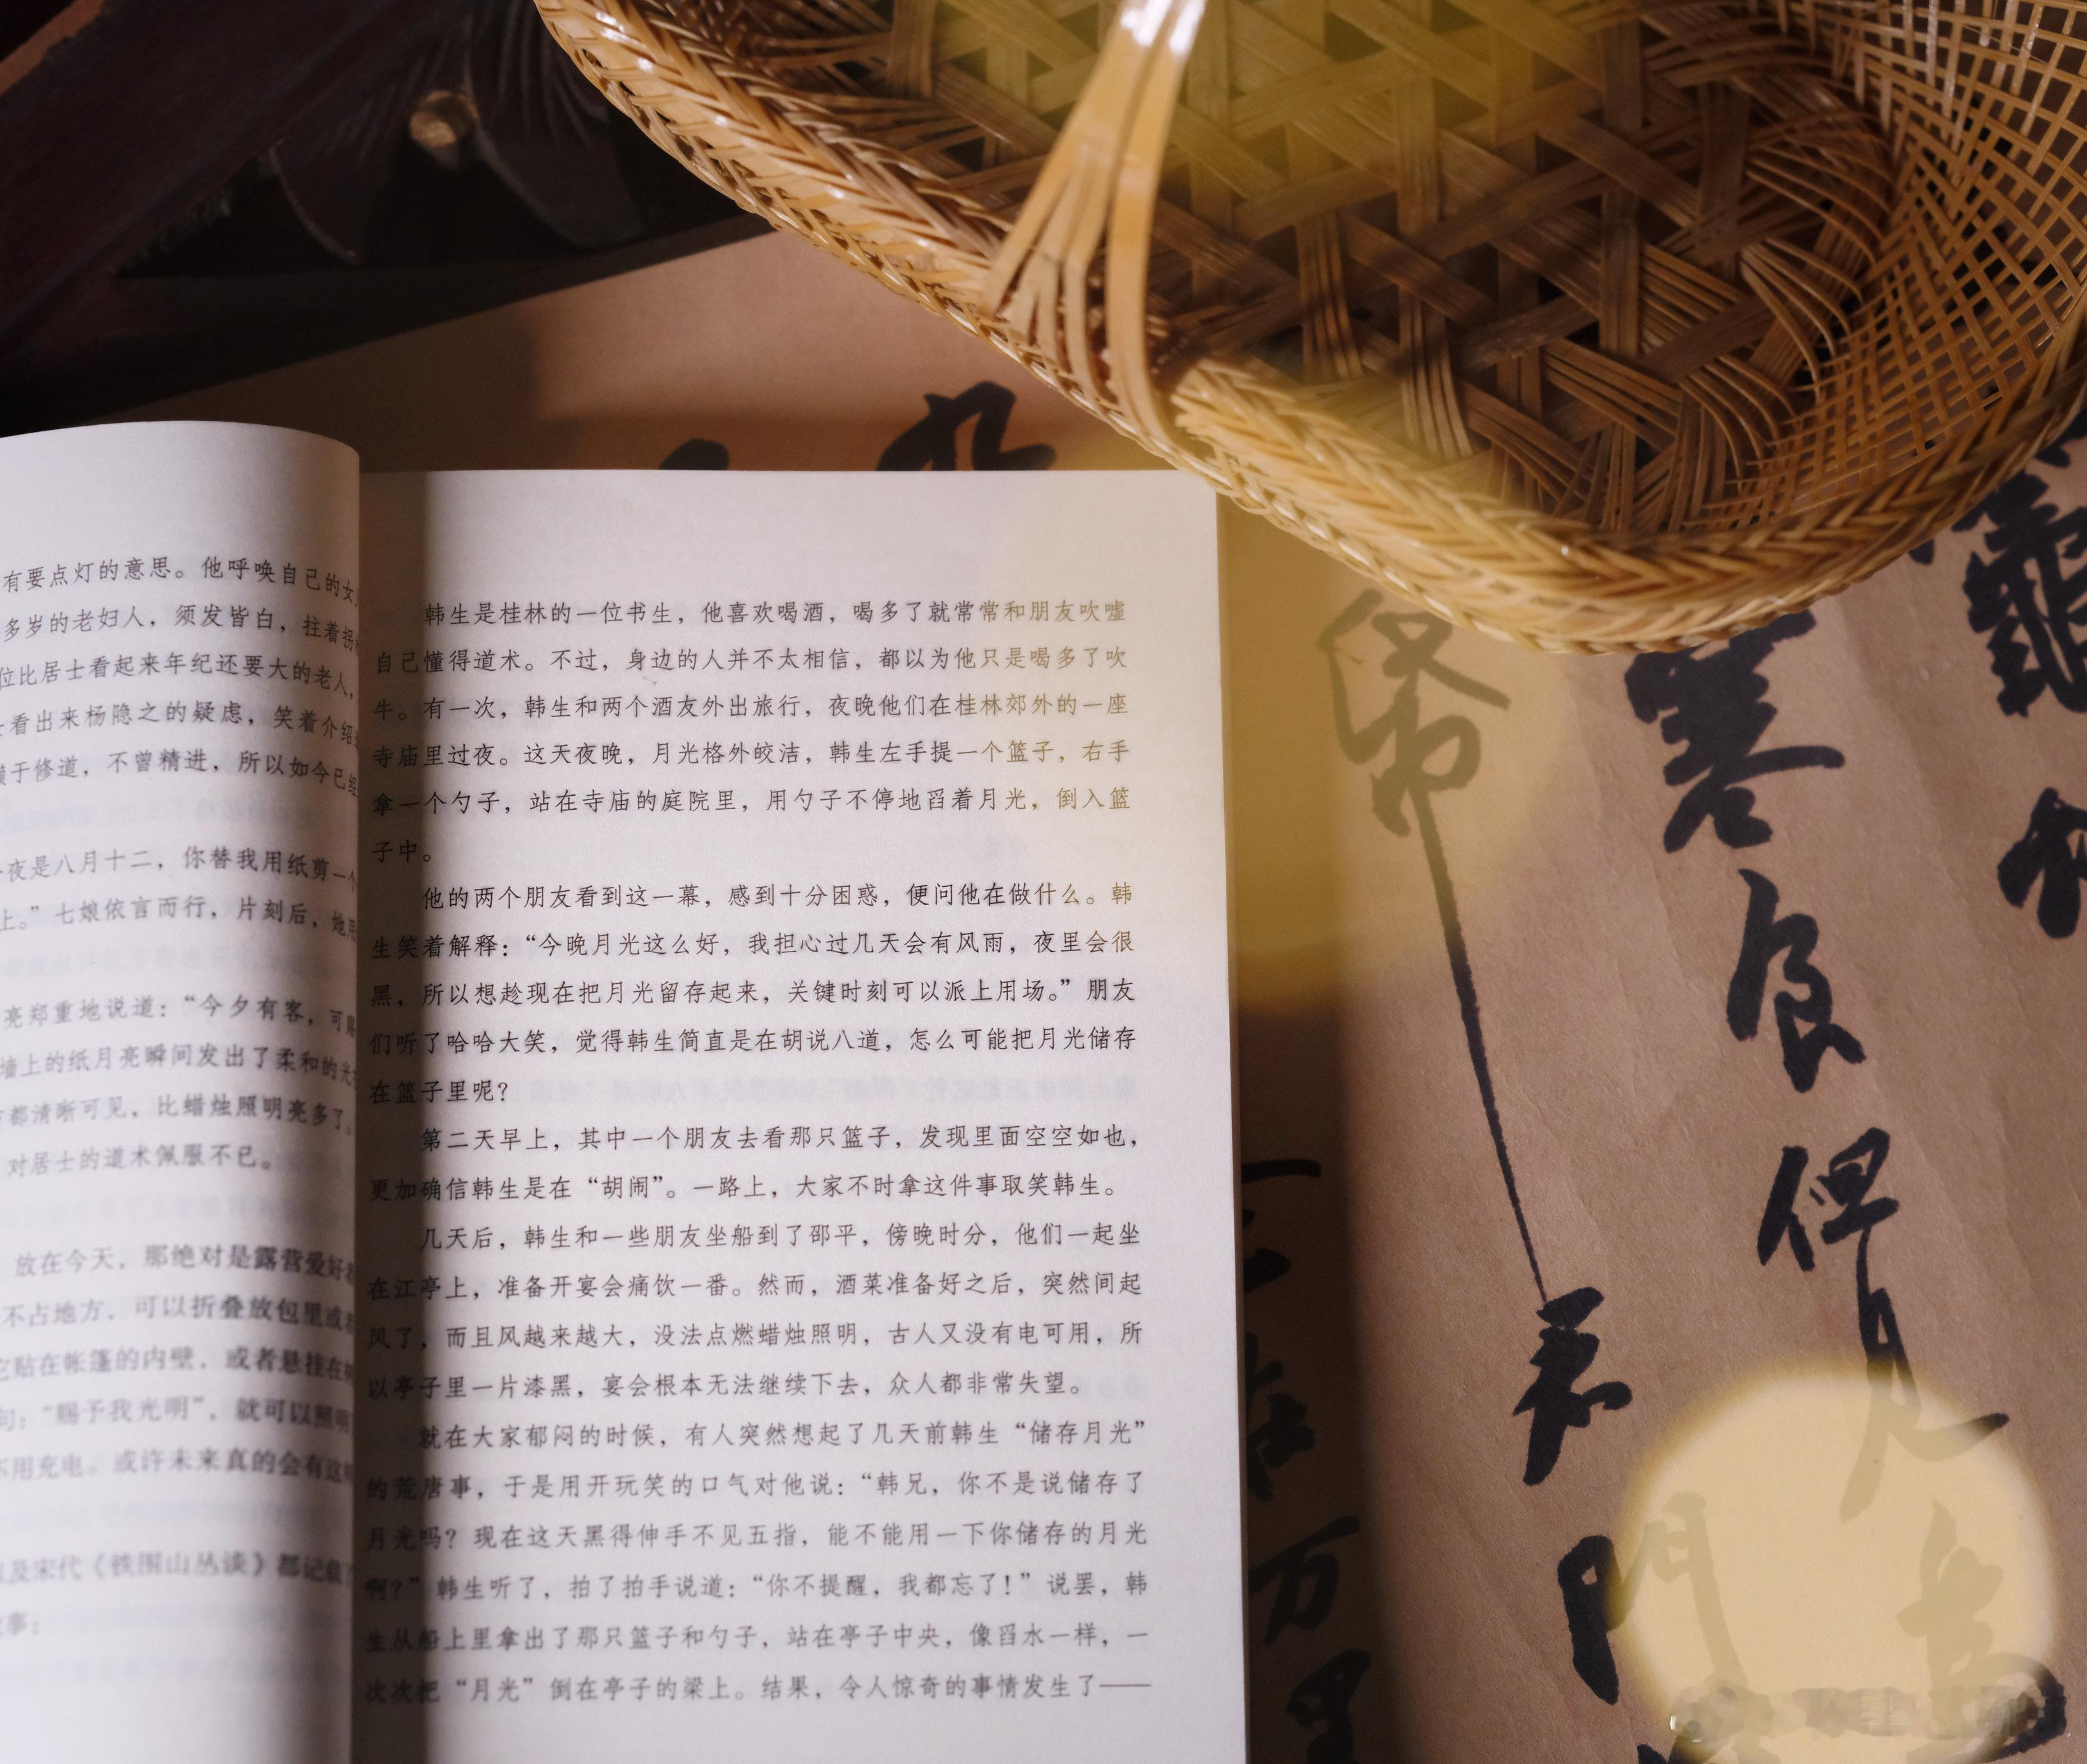 有要点灯的意思。他呼唤自己的女
多岁的老妇人，须发皆白，拄着拐
位比居士看起来年纪还要大的老人，
看出来杨隐之的疑虑，笑着介绍
于修道，不曾精进，所以如今已经
夜是八月十二，你替我用纸剪一个
上。”七娘依言而行，片刻后，她用
亮郑重地说道：“今夕有客，可赐
墙上的纸月亮瞬间发出了柔和的光
都清晰可见，比蜡烛照明亮多了。
对居士的道术佩服不已。
放在今天，那绝对是露营爱好
不占地方，可以折叠放包里或
它贴在帐篷的内壁，或者悬挂在
句：“赐予我光明”，就可以照明
不用充电。或许未来真的会有这
及宋代《铁围山丛谈》都记载
事：
韩生是桂林的一位书生，他喜欢喝酒，喝多了就常常和朋友吹嘘
自己懂得道术。不过，身边的人并不太相信，都以为他只是喝多了吹
牛。有一次，韩生和两个酒友外出旅行，夜晚他们在桂林郊外的一座
寺庙里过夜。这天夜晚，月光格外皎洁，韩生左手提一个篮子，右手
拿一个勺子，站在寺庙的庭院里，用勺子不停地舀着月光，倒入篮
子中。
他的两个朋友看到这一幕，感到十分困惑，便问他在做什么。韩
生笑着解释：“今晚月光这么好，我担心过几天会有风雨，夜里会很
黑，所以想趁现在把月光留存起来，关键时刻可以派上用场。”朋友
们听了哈哈大笑，觉得韩生简直是在胡说八道，怎么可能把月光储存
在篮子里呢？
第二天早上，其中一个朋友去看那只篮子，发现里面空空如也，
更加确信韩生是在“胡闹”。一路上，大家不时拿这件事取笑韩生。
几天后，韩生和一些朋友坐船到了邵平，傍晚时分，他们一起坐
在江亭上，准备开宴会痛饮一番。然而，酒菜准备好之后，突然间起
风了，而且风越来越大，没法点燃蜡烛照明，古人又没有电可用，所
以亭子里一片漆黑，宴会根本无法继续下去，众人都非常失望。
就在大家郁闷的时候，有人突然想起了几天前韩生“储存月光”
的荒唐事，于是用开玩笑的口气对他说：“韩兄，你不是说储存了
月光吗？现在这天黑得伸手不见五指，能不能用一下你储存的月光
啊？”韩生听了，拍了拍手说道：“你不提醒，我都忘了！”说罢，韩
生从船上里拿出了那只篮子和勺子，站在亭子中央，像舀水一样，一
次次把“月光”倒在亭子的梁上。结果，令人惊奇的事情发生了——
寒食但見烏
帋君門
万里